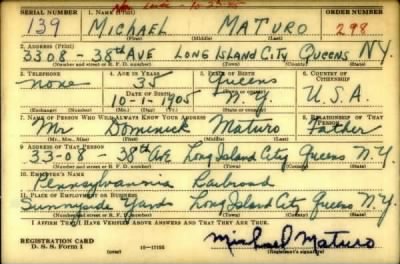 SERIAL NUMBER 1. NAME (Print) ORDER NUMBER
139 MICHAEL MATURO 298
(First) (Middle) (Last)
2. ADDRESS (Print)
3308 - 38th AVE LONG ISLAND CITY QUEENS N.Y.
(Number and street or R. F. D. number) (Town) (County) (State)
3. TELEPHONE 4. AGE IN YEARS 5. PLACE OF BIRTH 6. COUNTRY OF CITIZENSHIP
none 35 Queens
DATE OF BIRTH (Town or county)
10-1-1905 N.Y. U.S.A.
(Exchange) (Number) (Mo.) (Day) (Yr.) (State or country)
7. NAME OF PERSON WHO WILL ALWAYS KNOW YOUR ADDRESS 8. RELATIONSHIP OF THAT PERSON
Mr Dominick Maturo Father
(Mr., Mrs., Miss) (First) (Middle) (Last)
9. ADDRESS OF THAT PERSON
33-08 - 38th Ave Long Island City Queens N.Y.
(Number and street or R. F. D. number) (Town) (County) (State)
10. EMPLOYER'S NAME
Pennsylvannia Railroad
11. PLACE OF EMPLOYMENT OR BUSINESS
Sunnyside Yards Long Island City Queens N.Y.
(Number and street or R. F. D. number) (Town) (County) (State)
I AFFIRM THAT I HAVE VERIFIED ABOVE ANSWERS AND THAT THEY ARE TRUE.
REGISTRATION CARD
D. S. S. Form 1 (over) 16-17105 Michael Maturo
(Registrant's signature)